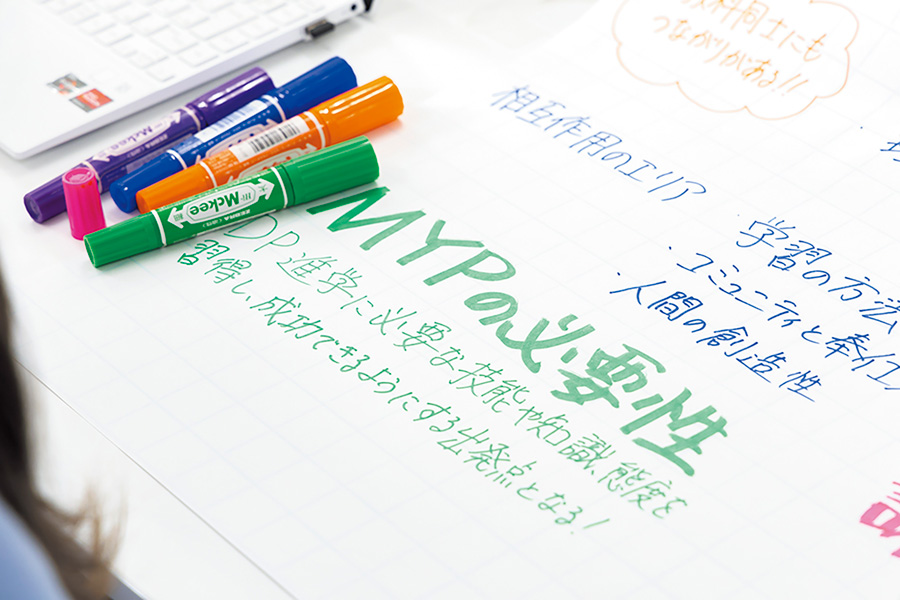 教科同士にも
つながりがある!!
相互作用のエリア
学習の方法
・コミュニティと奉仕
・人間の創造性
MYPの必要性
DP進学に必要な技能や知識、態度を
習得し、成功できるようにする出発点となる!
Mckee
Mckee
ZEBRA